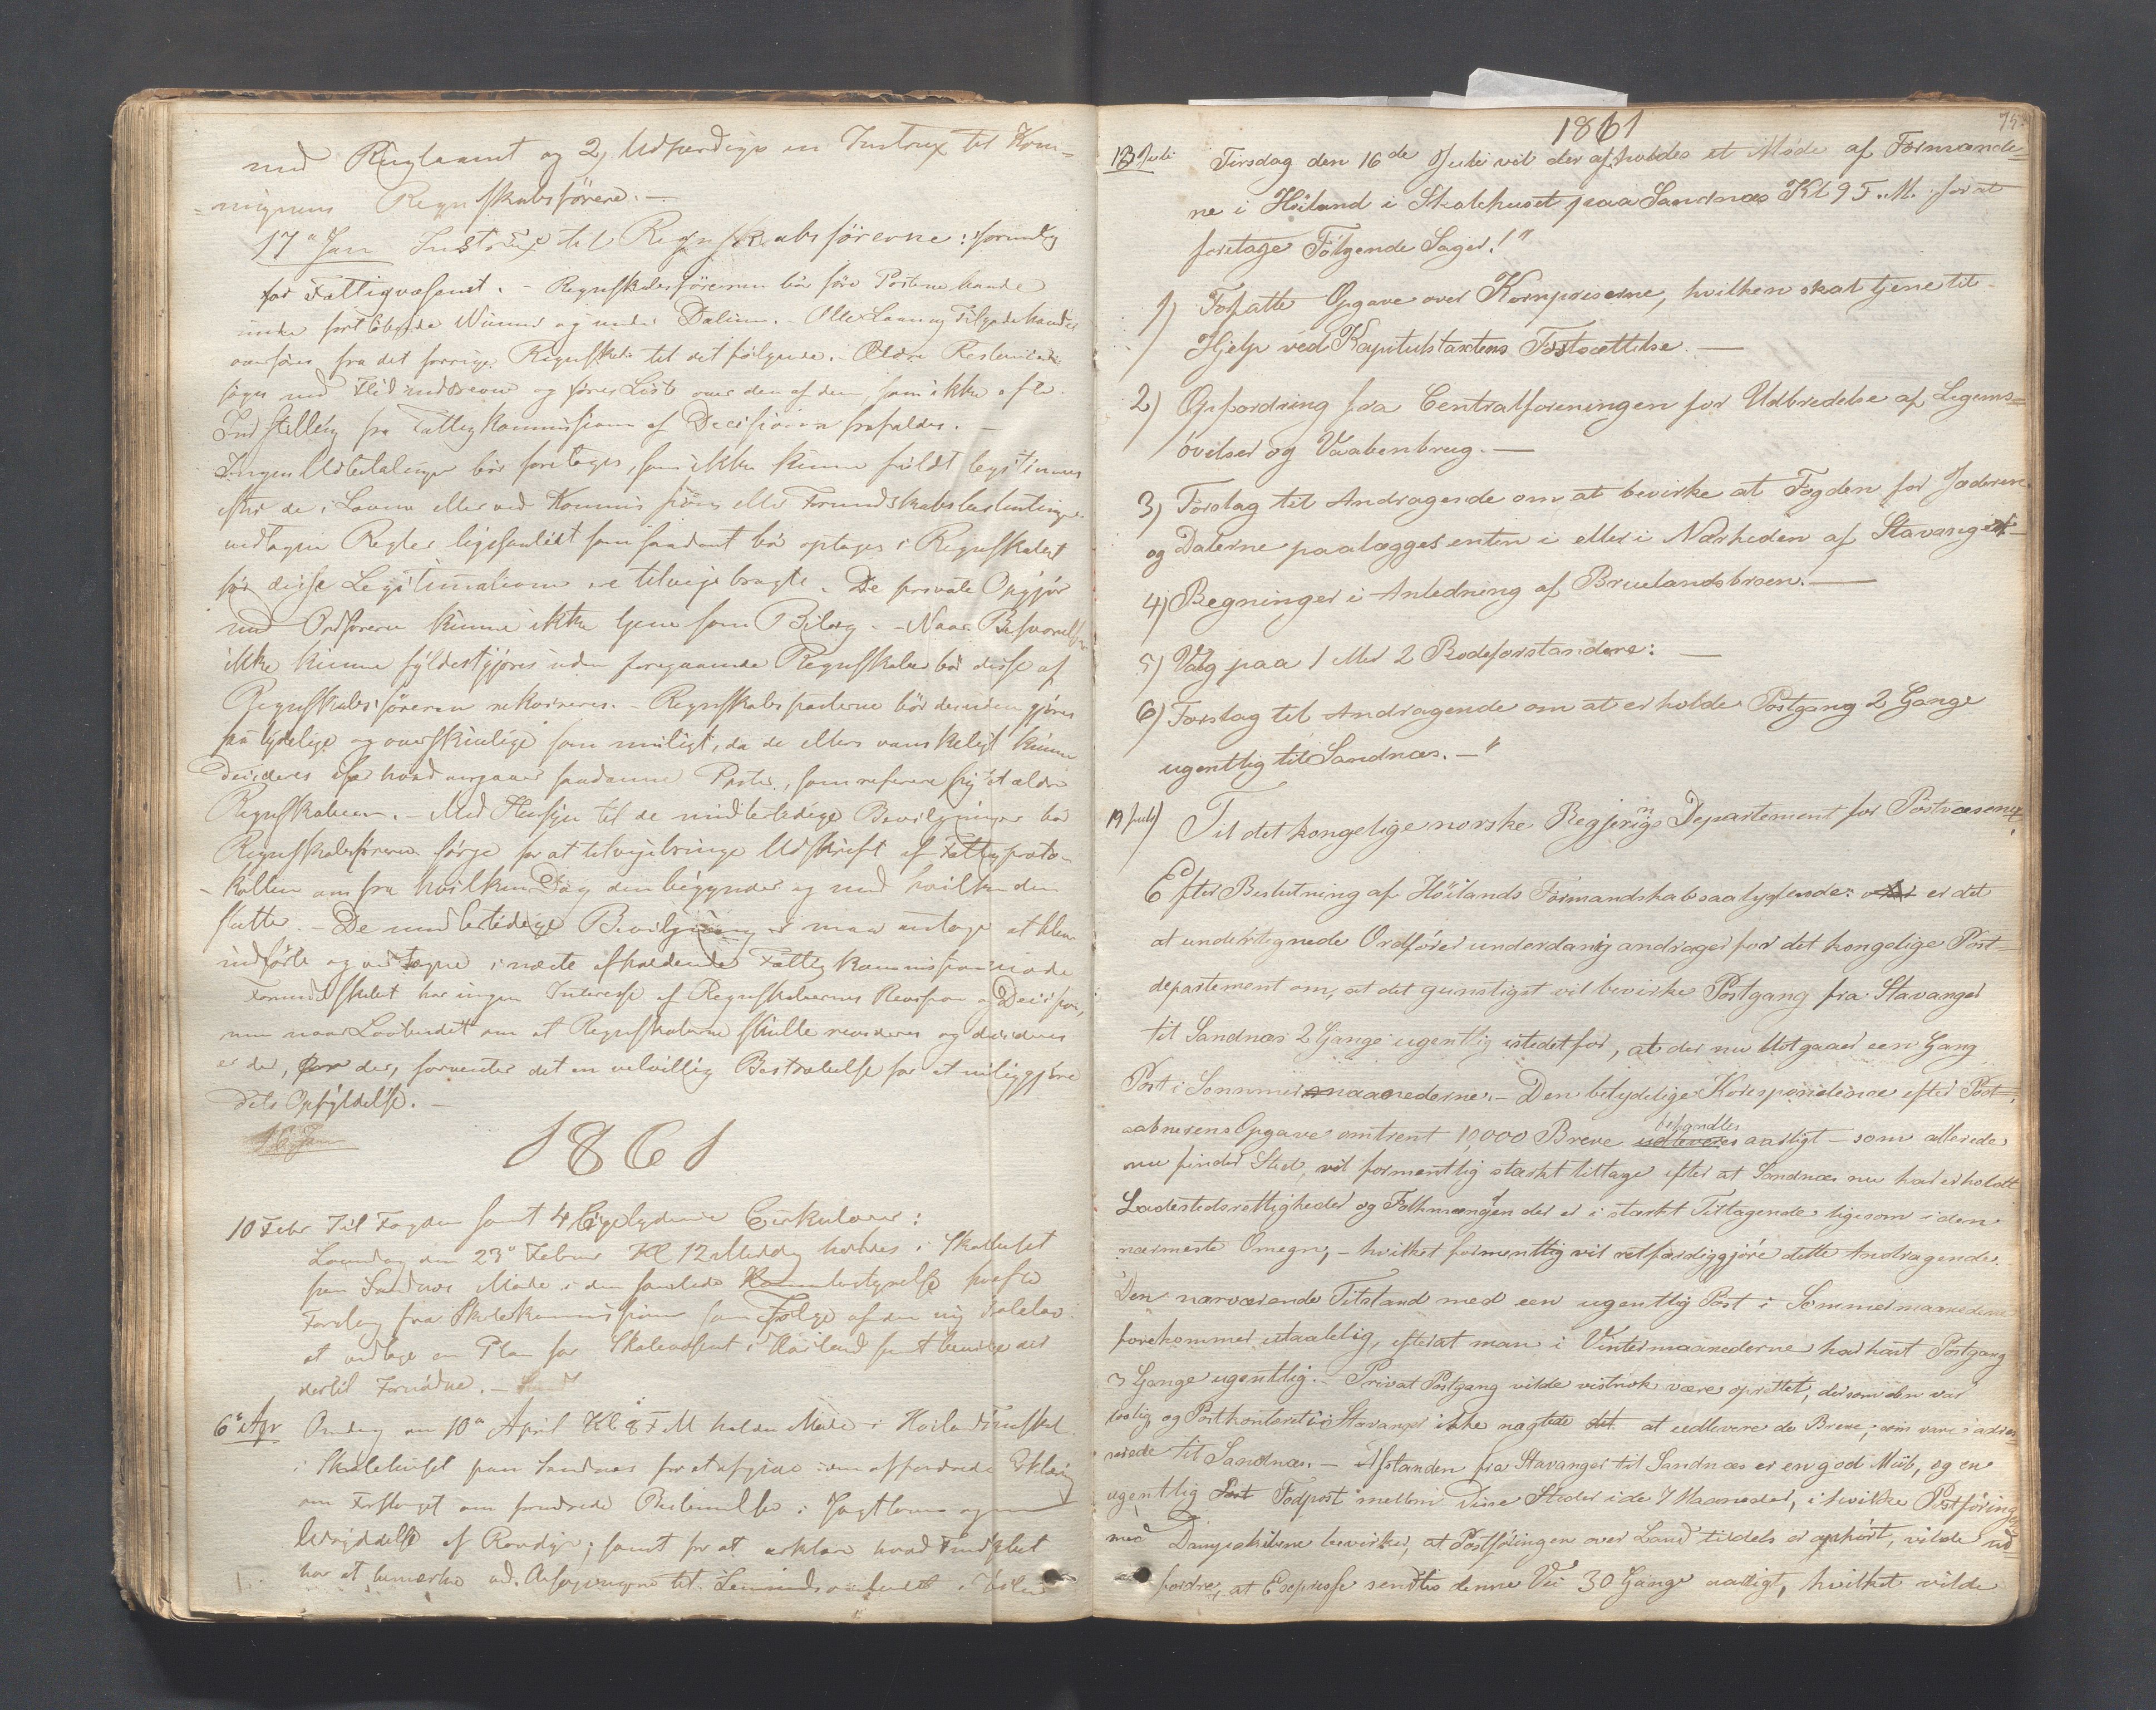 med Reglement og 2, Udfærdige en Instrux til Kom=
=munens Regnskabsförere. —
17de Jan Instrux til Regnskabsförerne: forunder
for Fattigvæsenet. — Regnskabsföreren bör före Posterne
under fortløbende Numer og under Datum. Alle Laan og
overføres fra det forrige Regnskab til det følgende. — Ældre Restancer
søges med Flid inddrevne og føres Liste over den af dem, som ikke efter
Indstilling fra Fattigkommissionen af Decisionen frafaldes. —
Ingen Udbetalinger bör foretages, som ikke kunne fuldt legitimeres
efter de i Loven eller ved Kommissions eller Formandskabsbeslutninger
vedtagne Regler ligesaalidt som saadant bör optages i Regnskabet
før disse Legitimationer ere tilveiebragte. De private Opgjör
med Ordføreren kunne ikke tjene som Bilag. — Naar Besvarelser
ikke kunne fyldestgjøres uden foregaaende Regnskaber bör disse af
Regnskabsføreren rekvireres. — Regnskabsposterne bör desuden gjøres
saa tydelige og overskuelige som muligt, da de ellers vanskeligt kunne
decideres især hvad angaaer saadanne Poster, som referere sig til ældre
Regnskaber. — Med Hensyn til de midlertidige Bevilgninger bör
Regnskabsføreren sørge for at tilveiebringe Udskrift af Fattigproto-
-kollen om fra hvilken Dag den begynder og med hvilken den
slutter. — De midlertidige Bevilgninger maa antages at blive
indførte og vedtagne i næste afholdende Fattigkommissionsmøde
Formandskabet har ingen Interesse af Regnskabernes Revision og Decision,
men naar Lovbudet om at Regnskaberne skulle revideres og decideres
er der, forventer det en velvillig Bestræbelse for at muliggjøre
dets Opfyldelse. —
1861
10 Febr Til Fogden samt 4 ligelydende Cirkulærer:
Løverdag den 23de Februar Kl 12 Middag holdes i Skolehuset
paa Sandnæs Møde i den samlede Kommunebestyrelse for efter
Forslag fra Skolekommissionen som Følge af den ny Skolelov
at vedtage en Plan for Skolevæsenet i Høiland samt bevilge det
dertil Fornødne. —
6te Apr Onsdag den 10de April Kl 8 F M holdes Møde i Høilands Formskab
i Skolehuset paa Sandnæs for at afgive den affordrede Erklæring
om Forslaget om forandrede Bestemmelser i Jagtloven og om
Udryddelse af Rovdyr; samt for at erklære hvad Formdskabet
har at bemærke ved Ansøgningerne til
1861
75.
13 Juli Tirsdag den 16de Juli vil der afholdes et Møde af Formænde=
ne i Höiland i Skolehuset paa Sandnæs Kl 9 F. M. for at
foretage Følgende Sager!"
1) Forfatte Opgave over Kornpriserne, hvilken skal tjene til
Hjelp ved Kapitulstaxtens Fastsættelse. —
2) Opfordring fra Centralforeningen for Udbredelse af Legems=
øvelser og Vaabenbrug. —
3) Forslag til Andragende om at bevirke at Fogden for Jæderen
og Dalerne paalægges enten i eller i Nærheden af Stavanger
4) Regninger i Anledning af Bruelandsbroen. —
5) Valg paa 1 eller 2 Rodeforstandere: —
6) Forslag til Andragende om at erholde Postgang 2 Gange
ugentlig til Sandnæs. — "
19 Juli) Til det kongelige norske Regjerings Departement for Postvæsenet,
Efter Beslutning af Höilands Formandskab saalydende: er det
at undertegnede Ordfører underdanig andrager for det kongelige Post=
departement om, at det gunstigst vil bevirke Postgang fra Stavanger
til Sandnæs 2 Gange ugentlig istedetfor, at der nu Udgaaer een Gang
Post i Sommermaanederne. — Den betydelige Korespondence efter Post=
aabnerens Opgave omtrent 10,000 Breve udleveres behandles aarligt — som allerede
nu finder Sted, vil formentlig stærkt tiltage efter at Sandnæs nu har erholdt
Ladestedsrettigheder og Folkmængden der er i stærkt Tiltagende ligesom i den
nærmeste Omegn, — hvilket formentlig vil retfærdiggjöre dette Andragende.
Den nærværende Tilstand med een ugentlig Post i Sommermaanederne
forekommer utaalelig, efterat man i Vintermaanederne har havt Postgang
3 Gange ugentlig. — Privat Postgang vilde vistnok være oprettet, dersom den var
lovlig og Postkontoret i Stavanger ikke nægtede det at udlevere de Breve, som vare adres=
serede til Sandnæs. — Afstanden fra Stavanger til Sandnæs er en god Miil, og en
ugentlig Post Fodpost mellem Disse Steder i de 7 Maaneder, i hvilke Postføringen
med Dampskibene bevirker, at Postføringen over Land tildels er ophört, vilde ud=
fordre, at Expresse sendtes denne Vei 30 Gange aarligt, hvilket vilde